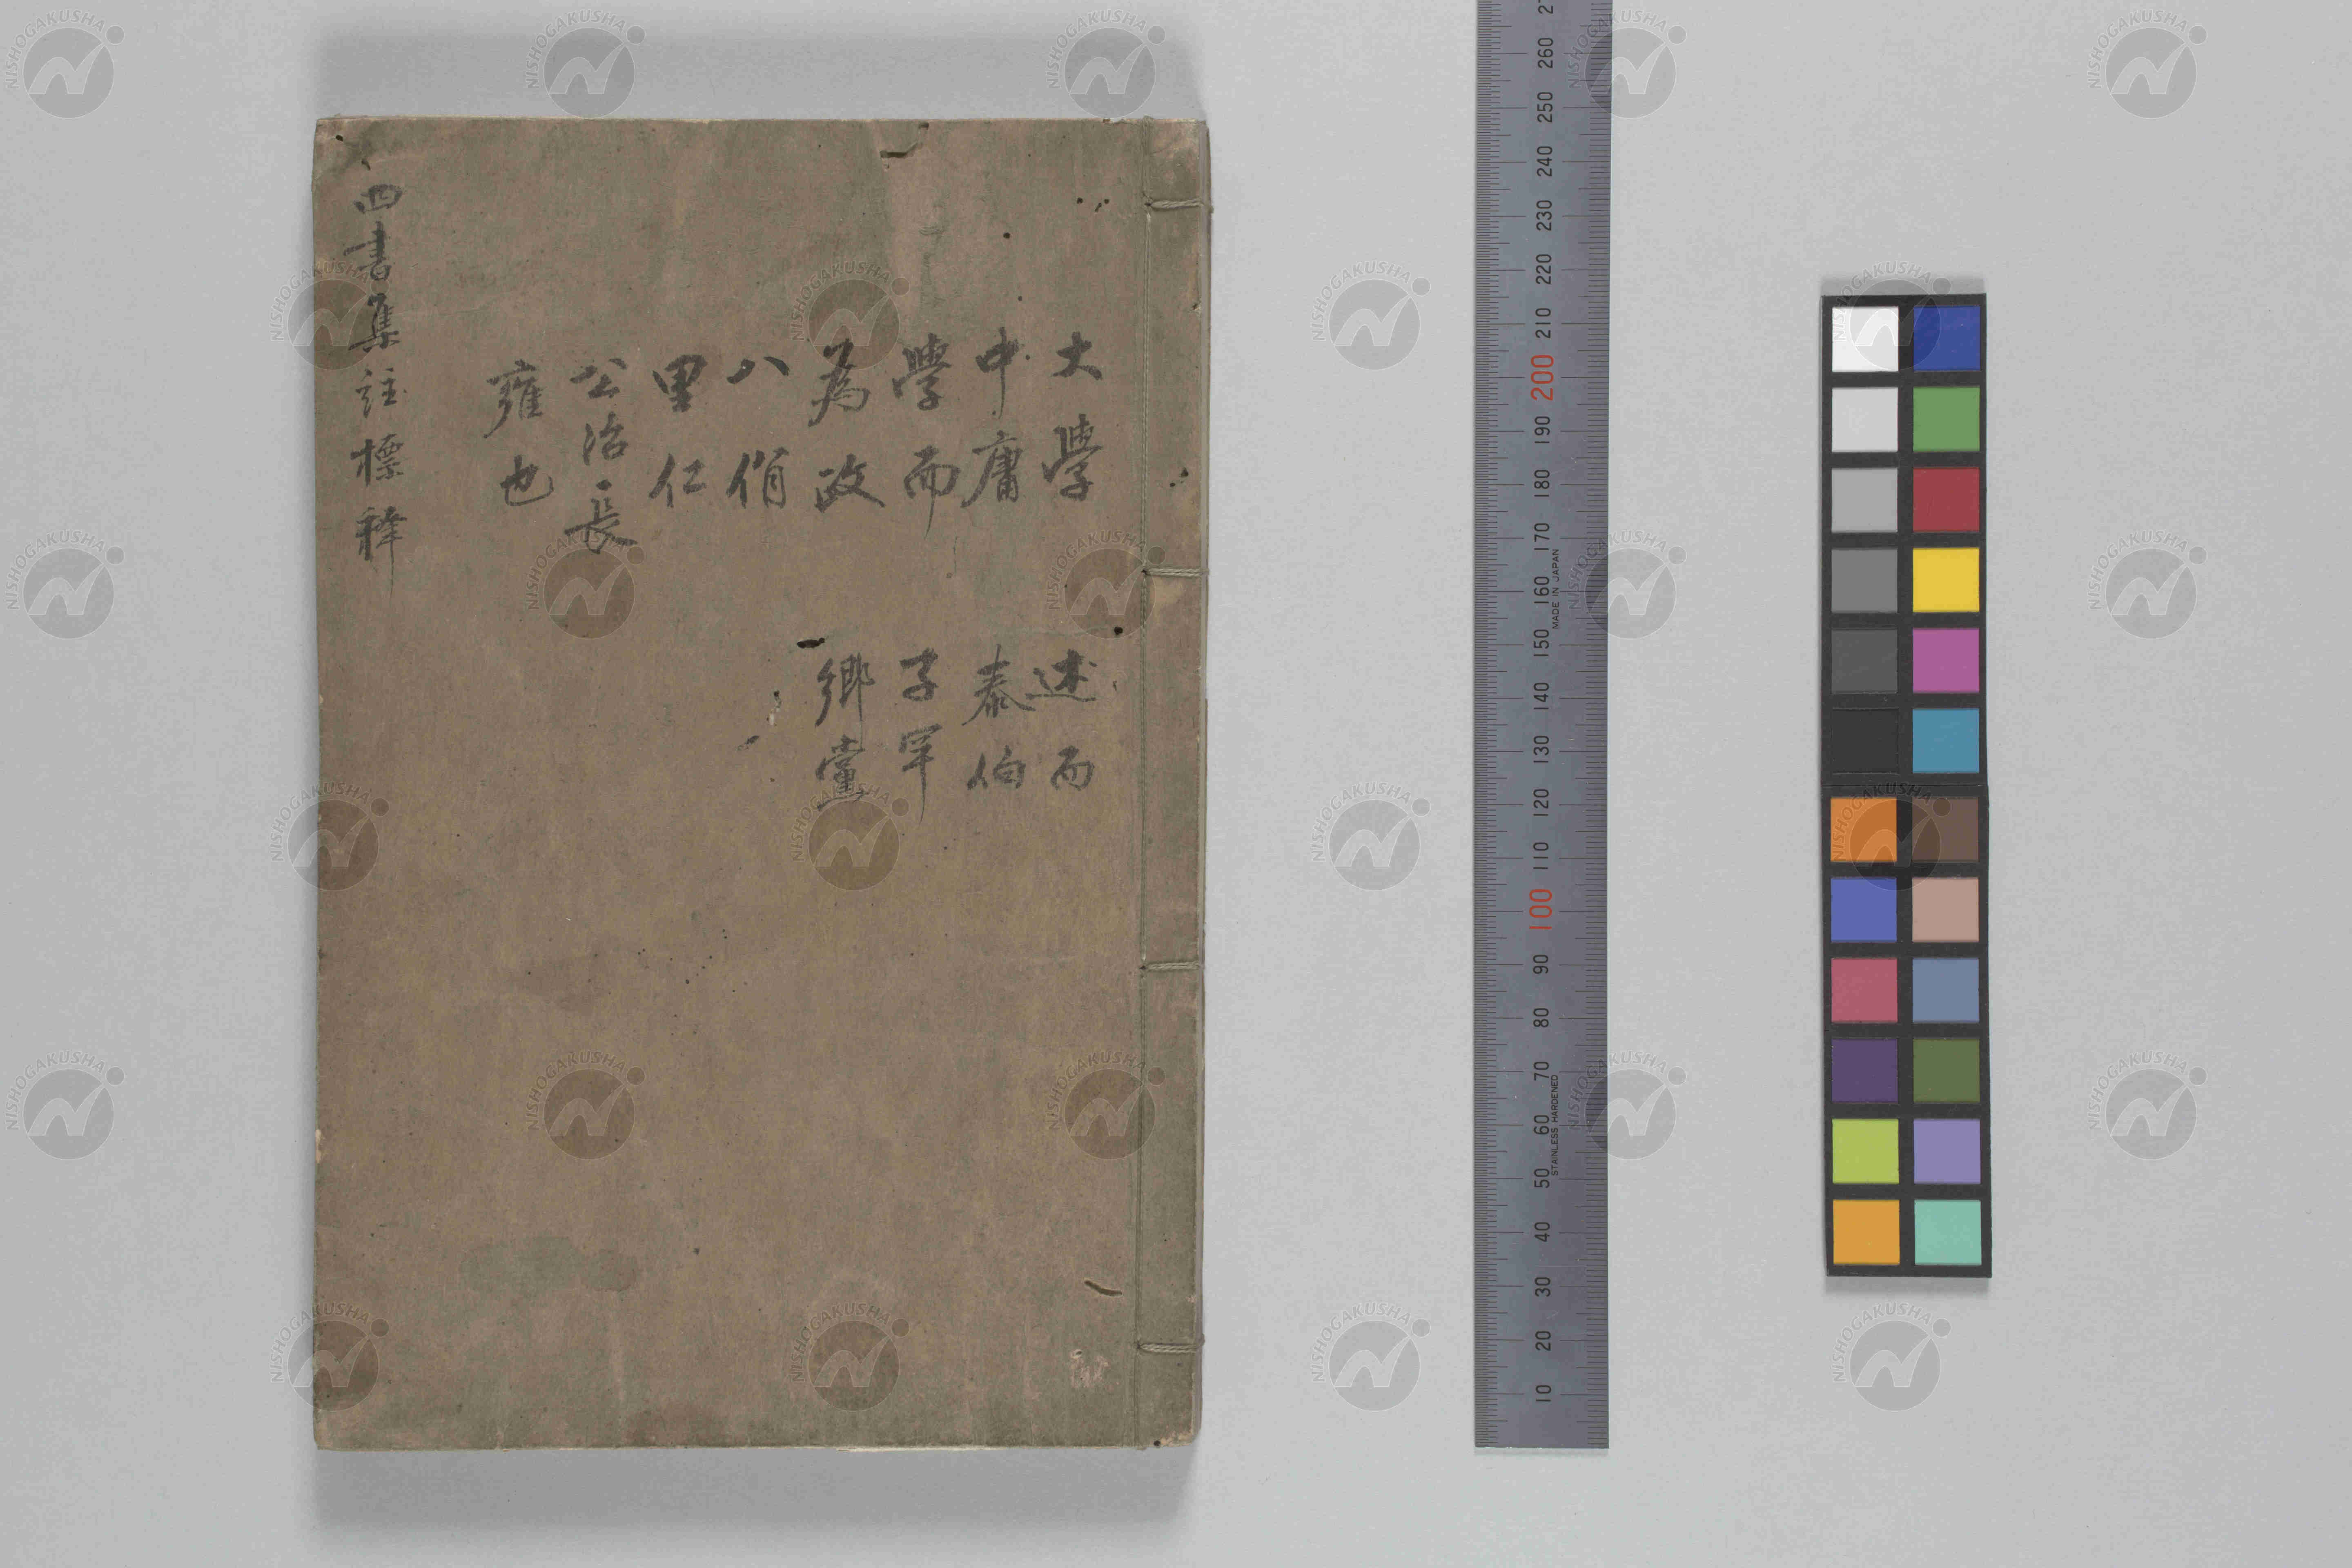 大學
中庸
學而
為政
八佾
里仁
公冶長
雍也
述而
泰伯
子罕
鄉黨
四書集註標釋
260
250
240
230
220
210
200
190
180
170
160
150
140
130
120
110
100
90
80
70
60
50
40
30
20
10
MADE IN JAPAN
STAINLESS HARDENED
NISHOGAKUSHA